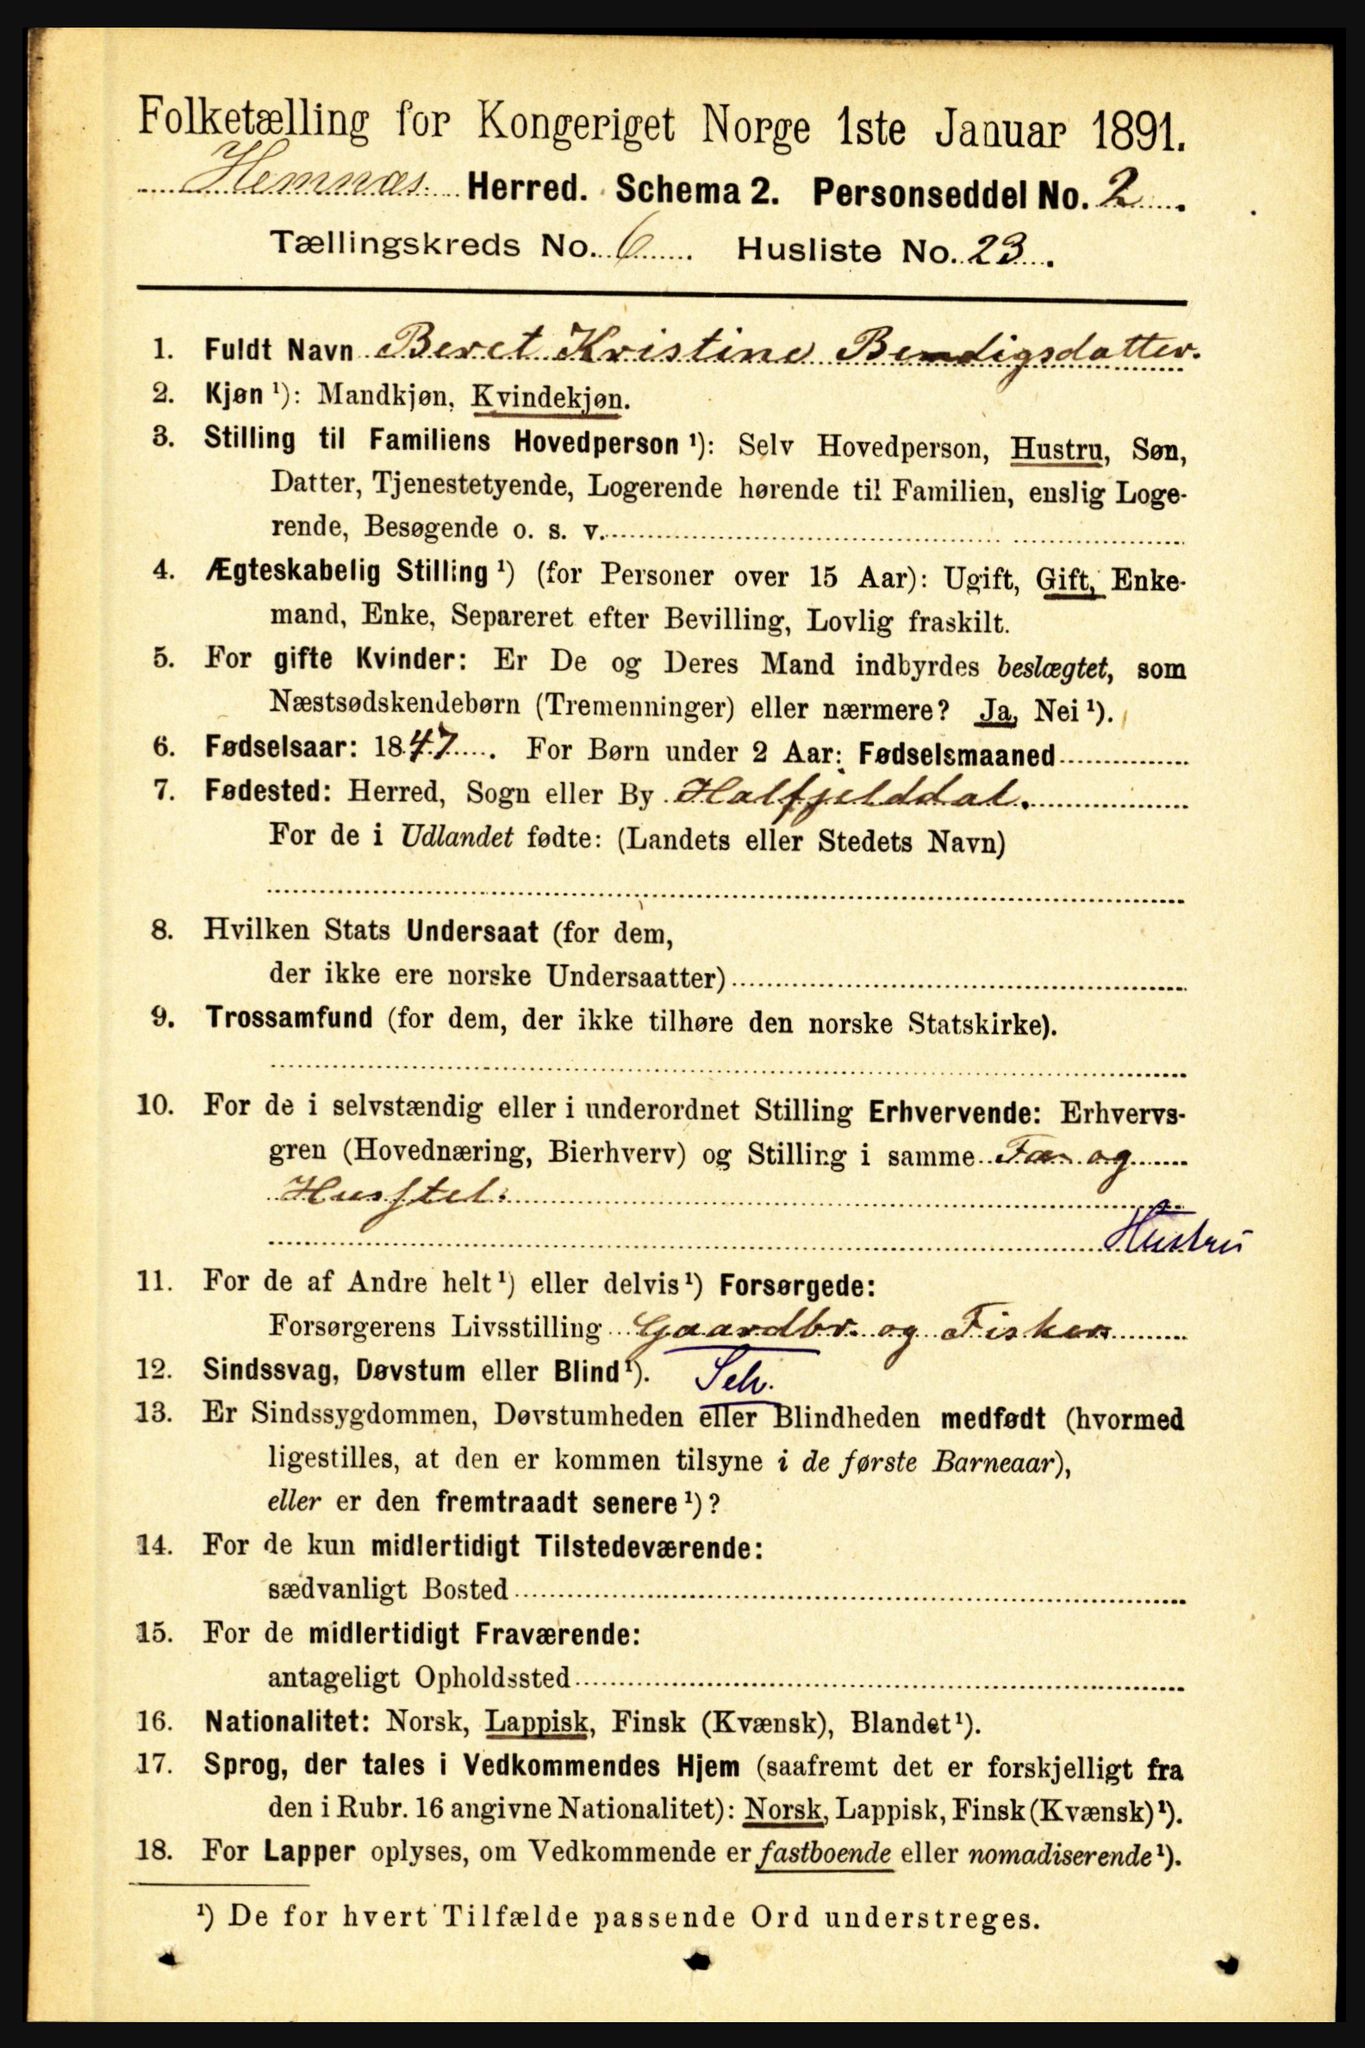 Folketælling for Kongeriget Norge 1ste Januar 1891.
Hemnæs Herred. Schema 2. Personseddel No. 2.
Tællingskreds No. 6. Husliste No. 23.
1. Fuldt Navn Beret Kristine Bendigsdatter.
2. Kjøn ¹): Mandkjøn, Kvindekjøn.
3. Stilling til Familiens Hovedperson ¹): Selv Hovedperson, Hustru, Søn,
Datter, Tjenestetyende, Logerende hørende til Familien, enslig Loge-
rende, Besøgende o. s. v.
4. Ægteskabelig Stilling ¹) (for Personer over 15 Aar): Ugift, Gift, Enke-
mand, Enke, Separeret efter Bevilling, Lovlig fraskilt.
5. For gifte Kvinder: Er De og Deres Mand indbyrdes beslægtet, som
Næstsødskendebørn (Tremenninger) eller nærmere? Ja, Nei ¹).
6. Fødselsaar: 1847. For Børn under 2 Aar: Fødselsmaaned
7. Fødested: Herred, Sogn eller By Hatfjelddal.
For de i Udlandet fødte: (Landets eller Stedets Navn)
8. Hvilken Stats Undersaat (for dem,
der ikke ere norske Undersaatter)
9. Trossamfund (for dem, der ikke tilhøre den norske Statskirke).
10. For de i selvstændig eller i underordnet Stilling Erhvervende: Erhvervs-
gren (Hovednæring, Bierhverv) og Stilling i samme Fæ og
Husstel.
Hustru
11. For de af Andre helt ¹) eller delvis ¹) Forsørgede:
Forsørgerens Livsstilling Gaardbr. og Fisker
12. Sindssvag, Døvstum eller Blind ¹). Selv.
13. Er Sindssygdommen, Døvstumheden eller Blindheden medfødt (hvormed
ligestilles, at den er kommen tilsyne i de første Barneaar),
eller er den fremtraadt senere ¹)?
14. For de kun midlertidigt Tilstedeværende:
sædvanligt Bosted
15. For de midlertidigt Fraværende:
antageligt Opholdssted
16. Nationalitet: Norsk, Lappisk, Finsk (Kvænsk), Blandet ¹).
17. Sprog, der tales i Vedkommendes Hjem (saafremt det er forskjelligt fra
den i Rubr. 16 angivne Nationalitet): Norsk, Lappisk, Finsk (Kvænsk) ¹).
18. For Lapper oplyses, om Vedkommende er fastboende eller nomadiserende ¹).
¹) De for hvert Tilfælde passende Ord understreges.